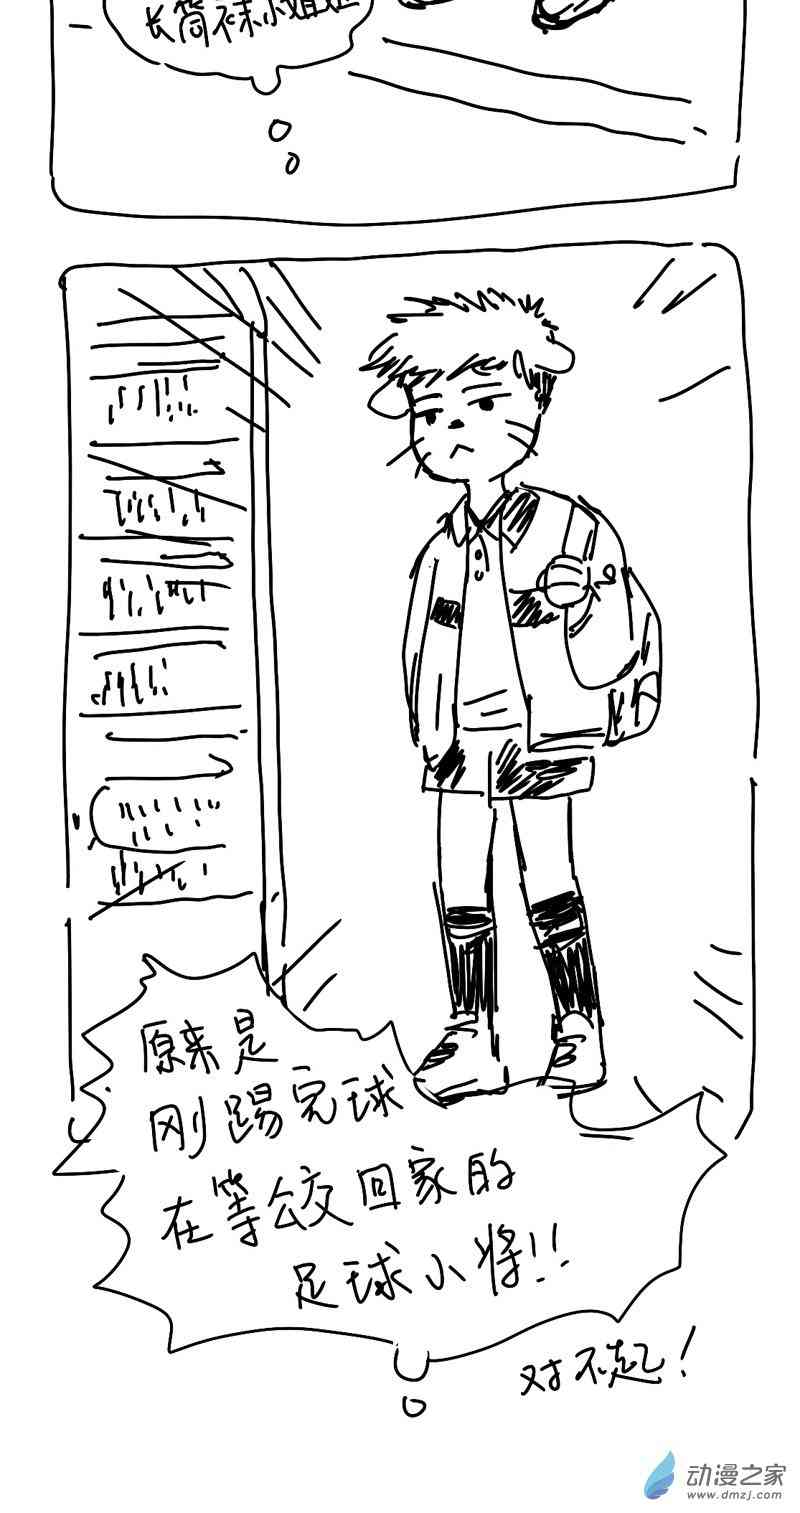 长筒袜小姐姐
原来是
刚踢完球
在等公交回家的
足球小将!!
对不起!
动漫之家
www.dmzj.com